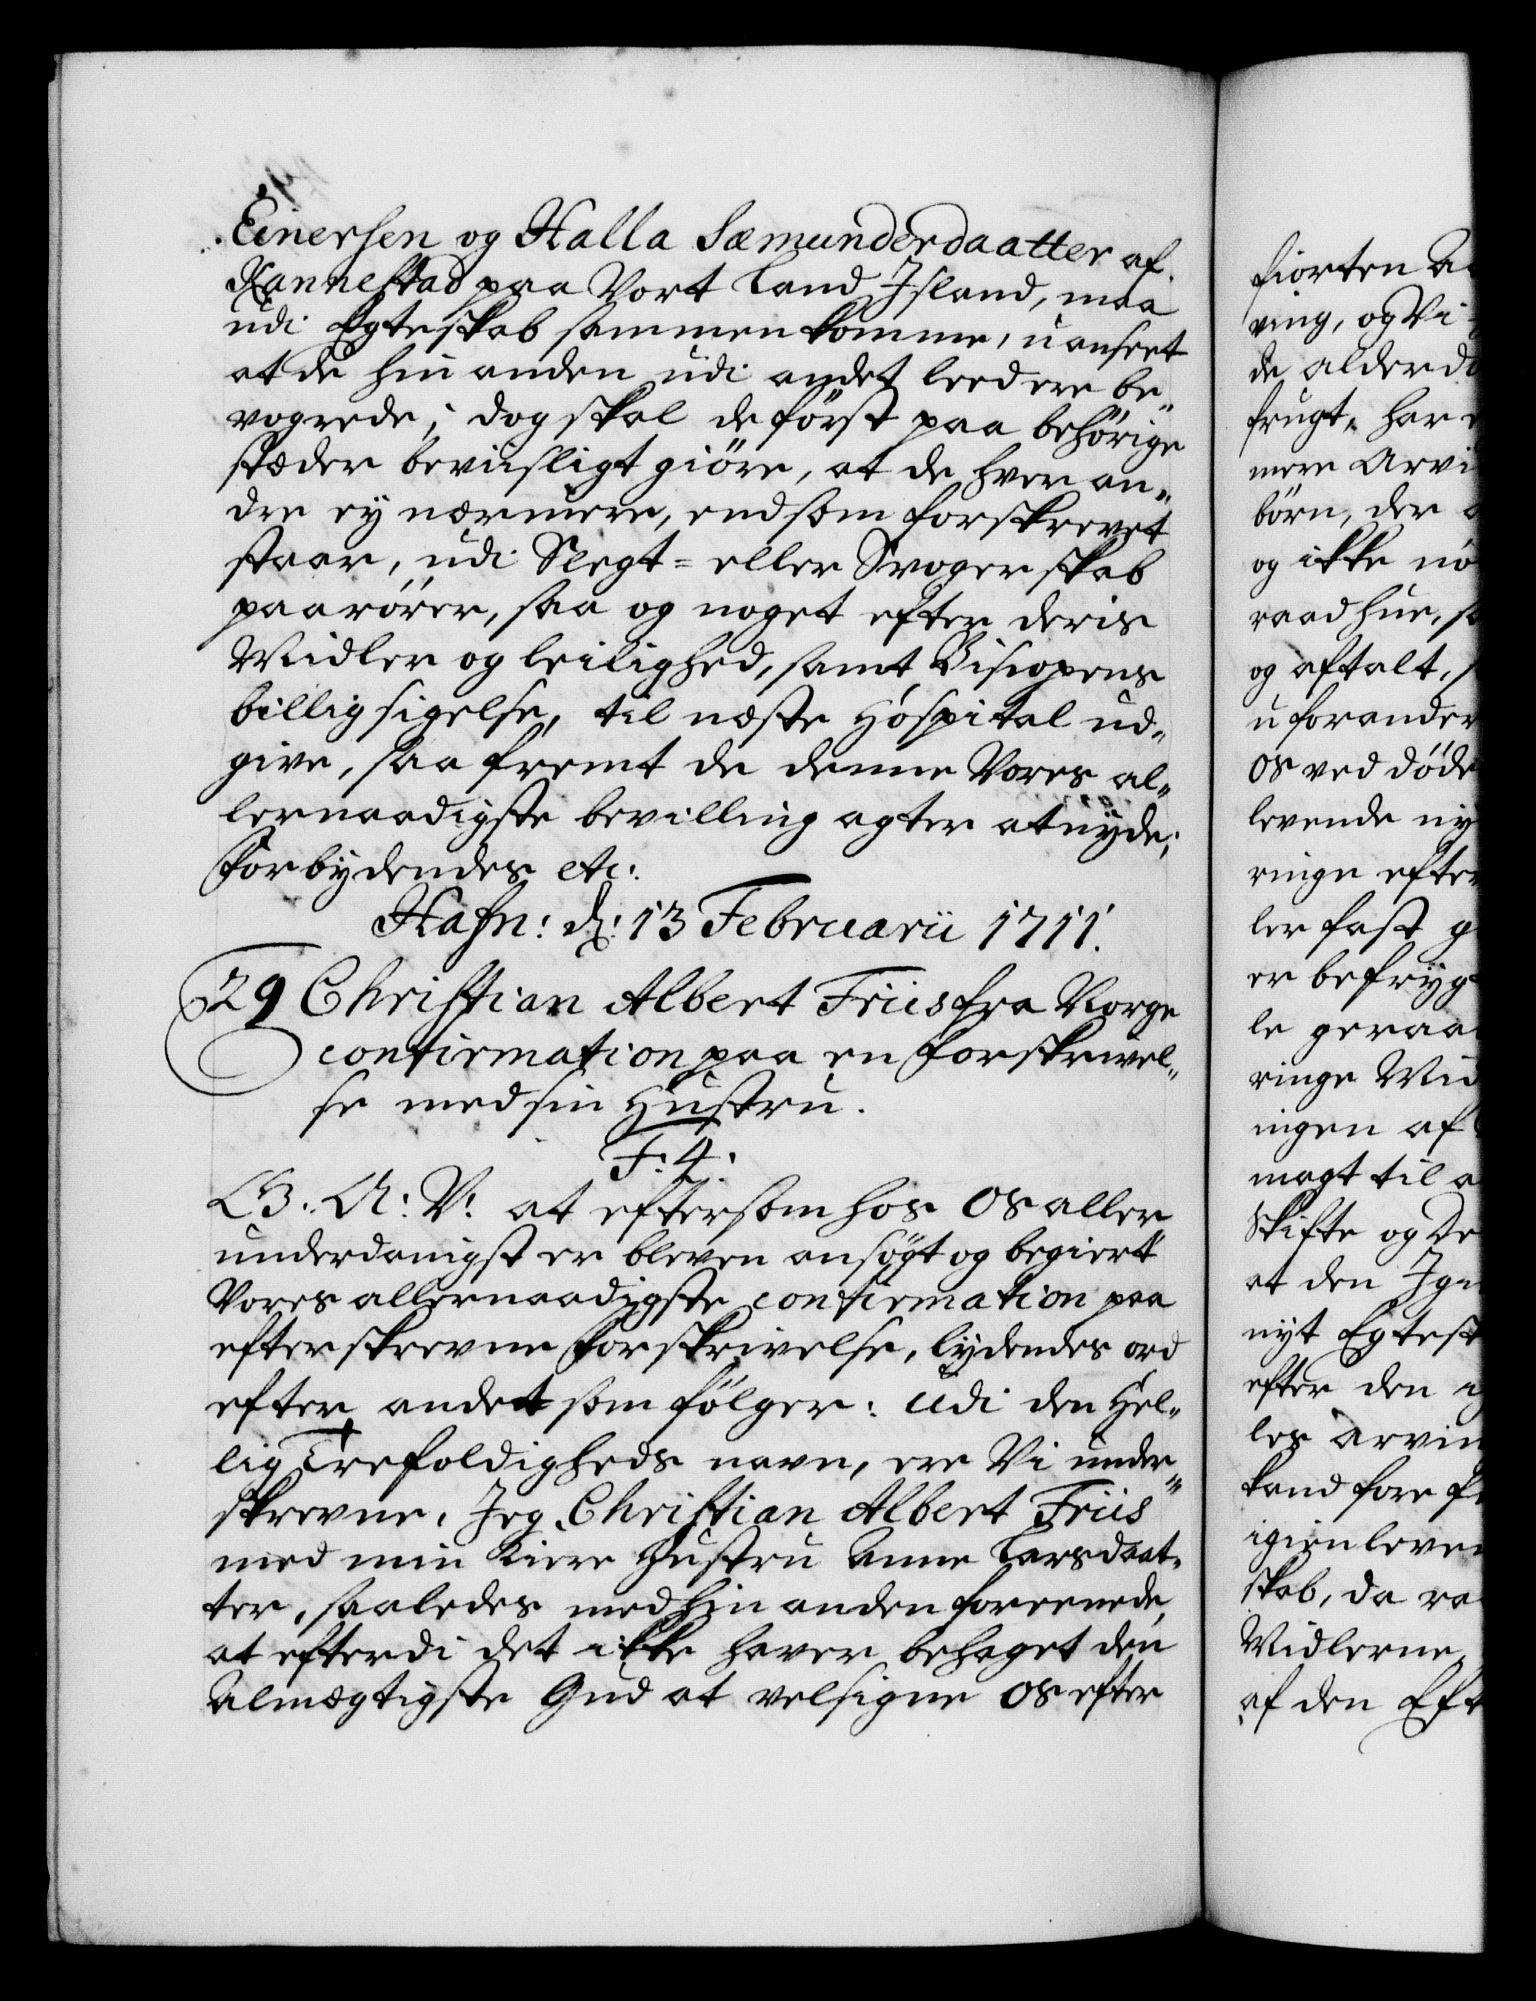 Einersen og Halla Sæmunderdaatter af
Hannestad paa Vort Land Jsland, maa
udi Egteskab sammenkomme, uanseet
at de hin anden udi andet leed ere be„
vogrede; dog skal de först paa behörige
stæder beviisligt giöre, at de hver an„
dre ey nærmere, end som forskrevet
staar, udi Slegt= eller Svogerskab
paarörer, saa og noget efter deris
Midler og leilighed, samt Biscopens
billigsigelse, til næste Hospital ud„
give, saa fremt de denne Vores al„
lernaadigste bevilling agter at nyde;
Forbydendes etc:
Hafn: d: 13 Februarii 1711.
29 Christian Albert Friis fra Norge
confirmation paa en forskrivel„
se med sin Hustru.
F: 4.
G. A: V: at eftersom hos Os aller
underdanigst er bleven ansögt og begiert
Vores allernaadigste confirmation paa
efterskrevne forskrivelse, lydendes ord
efter andet som fölger: Udi den Hel„
lig Trefoldigheds navn, ere Vi under„
skrevne, Jeg Christian Albert Friis
med min Kiere Hustru Anne Larsdaat„
ter, saaledes med hin anden foreenede,
at efterdi det ikke haver behaget den
Almægtigste Gud at velsigne Os efter
fiorten
ving, og Vi
de alderdo
frugt, har
mere Arvi
börn, der
og ikke nö
raadhue, s
og aftalt,
uforander
Os ved döde
levende ny
ringe efter
ler fast g
er befryg
le geraa
ringe Mid
ingen af
magt til a
Skifte og De
at den Jgi
nyt Egtesk
efter den
les arvin
kand fore f
igienleve
skab, da
Midlerne
af den Eft